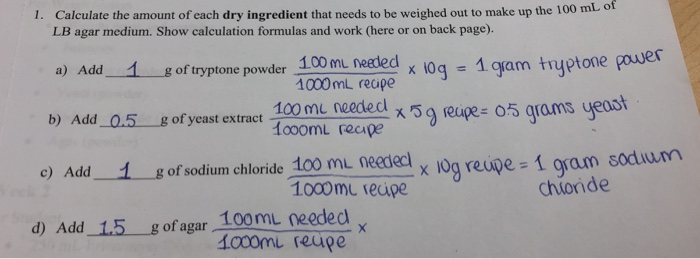 1. Calculate the amount of each dry ingredient that needs to be weighed out to make up the 100 mL of
LB agar medium. Show calculation formulas and work (here or on back page).
a) Add 1 g of tryptone powder 100 mL needed / 1000 mL recipe x 10g = 1 gram tryptone power
b) Add 0.5 g of yeast extract 100 mL needed / 1000mL recipe x 5g recipe = 0.5 grams yeast
c) Add 1 g of sodium chloride 100 mL needed / 1000mL recipe x 10g recipe = 1 gram sodium
chloride
d) Add 1.5 g of agar 100mL needed / 1000mL recipe x